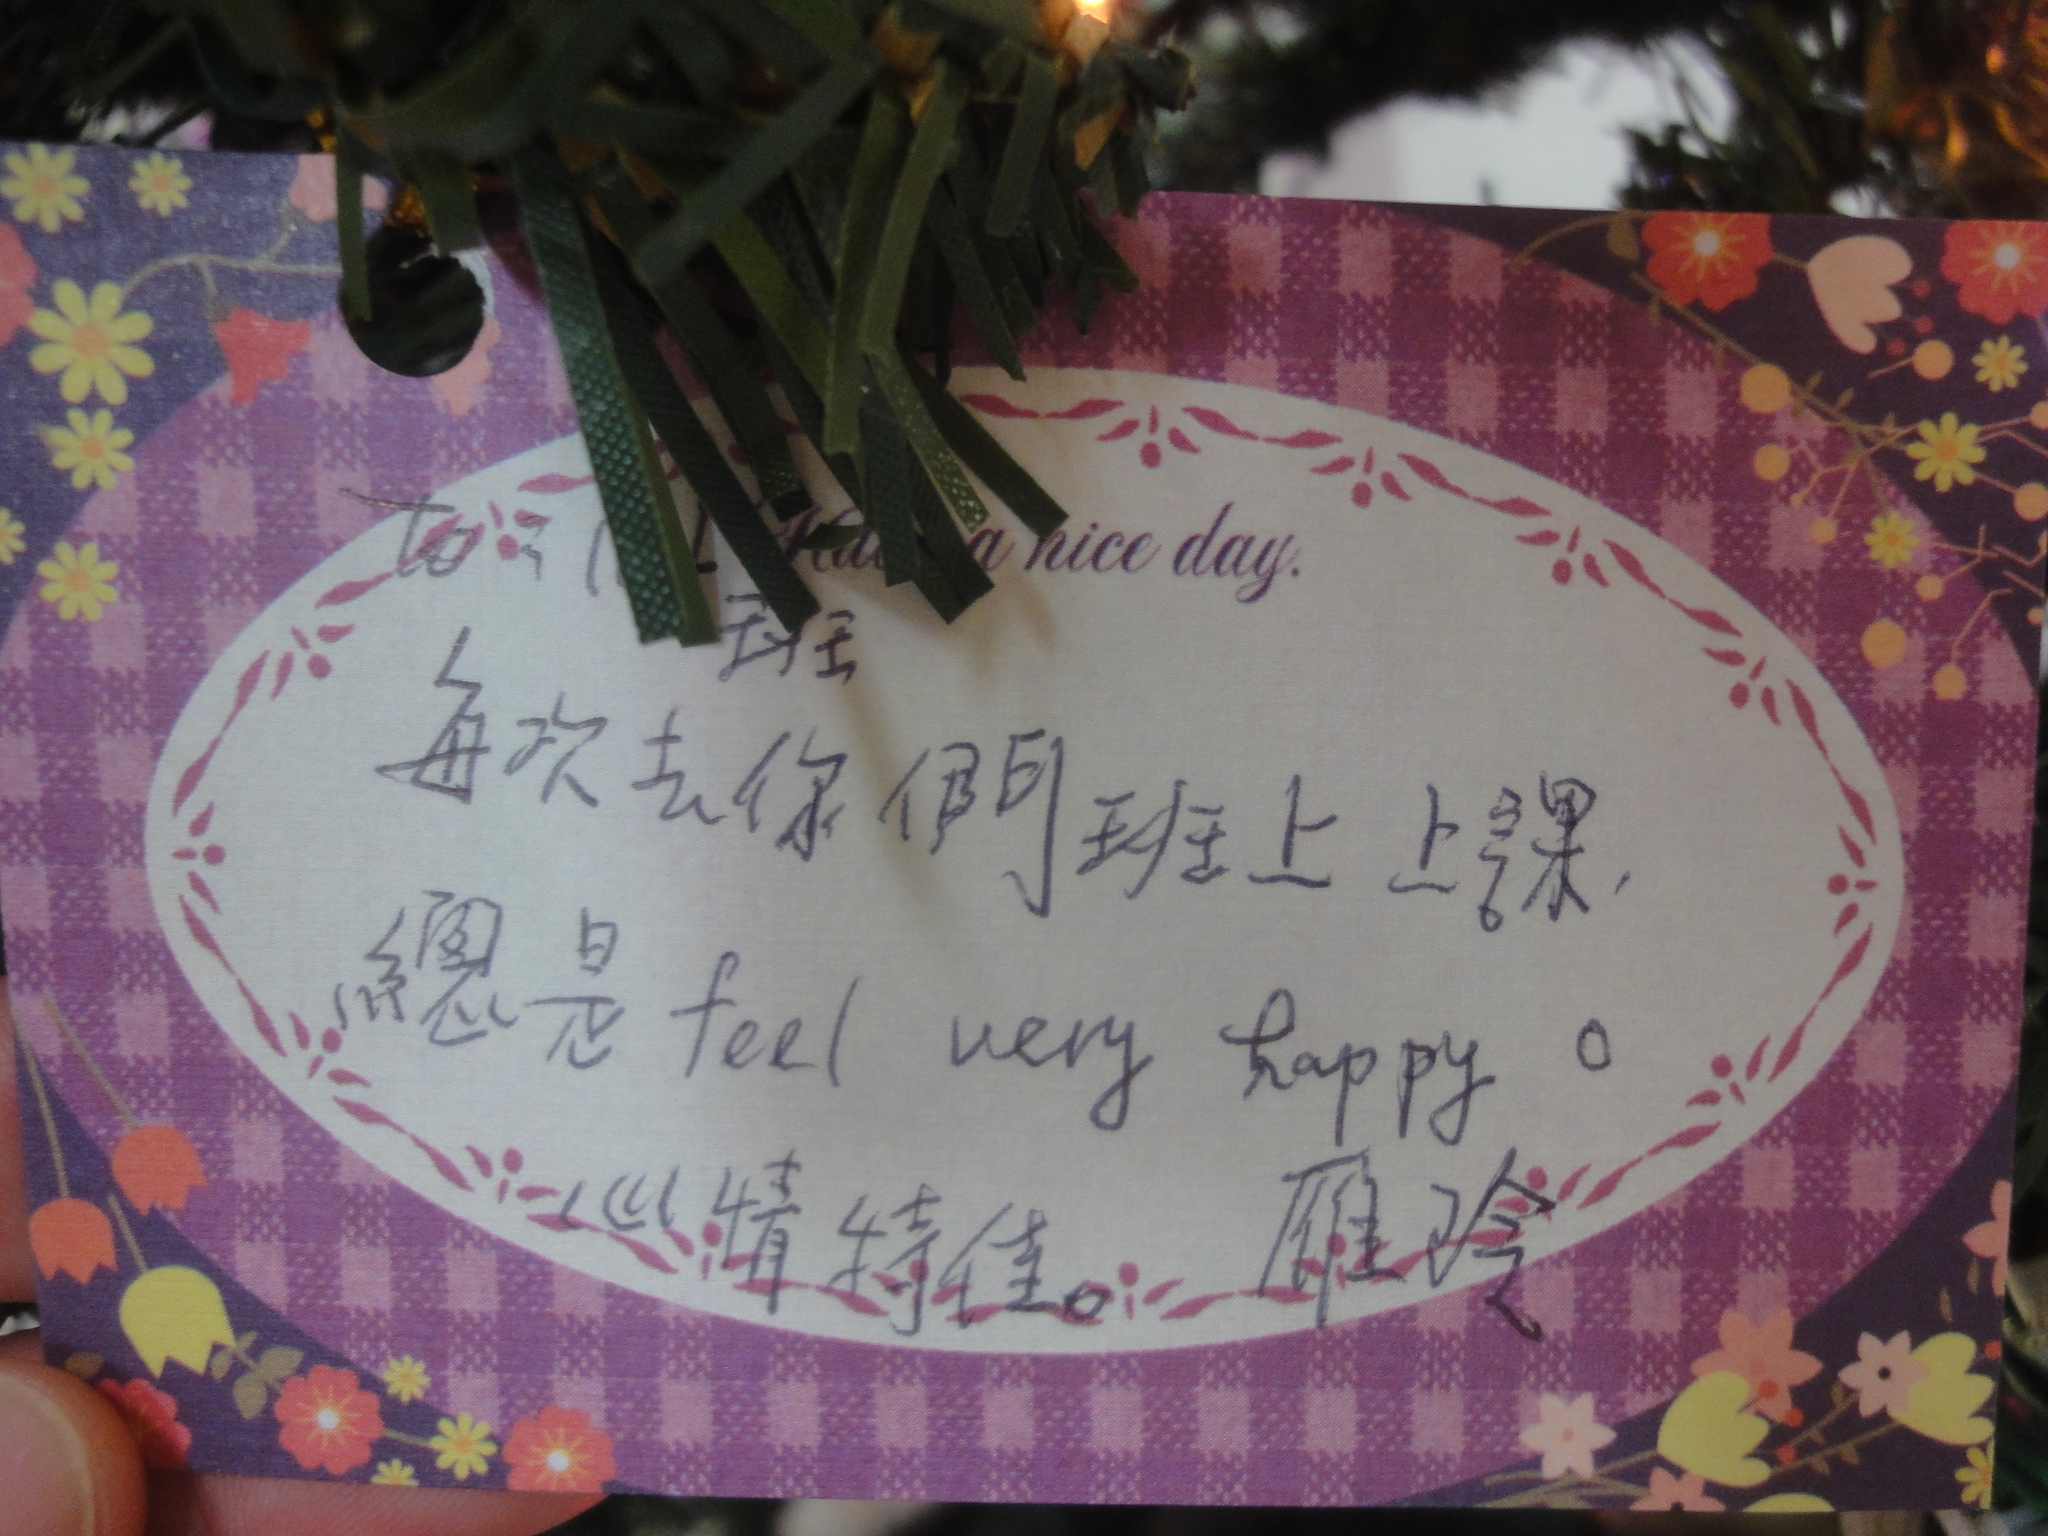 to
a nice day.
班
每次去你們班上上課,
總是feel very happy。
心情特佳。 雁玲